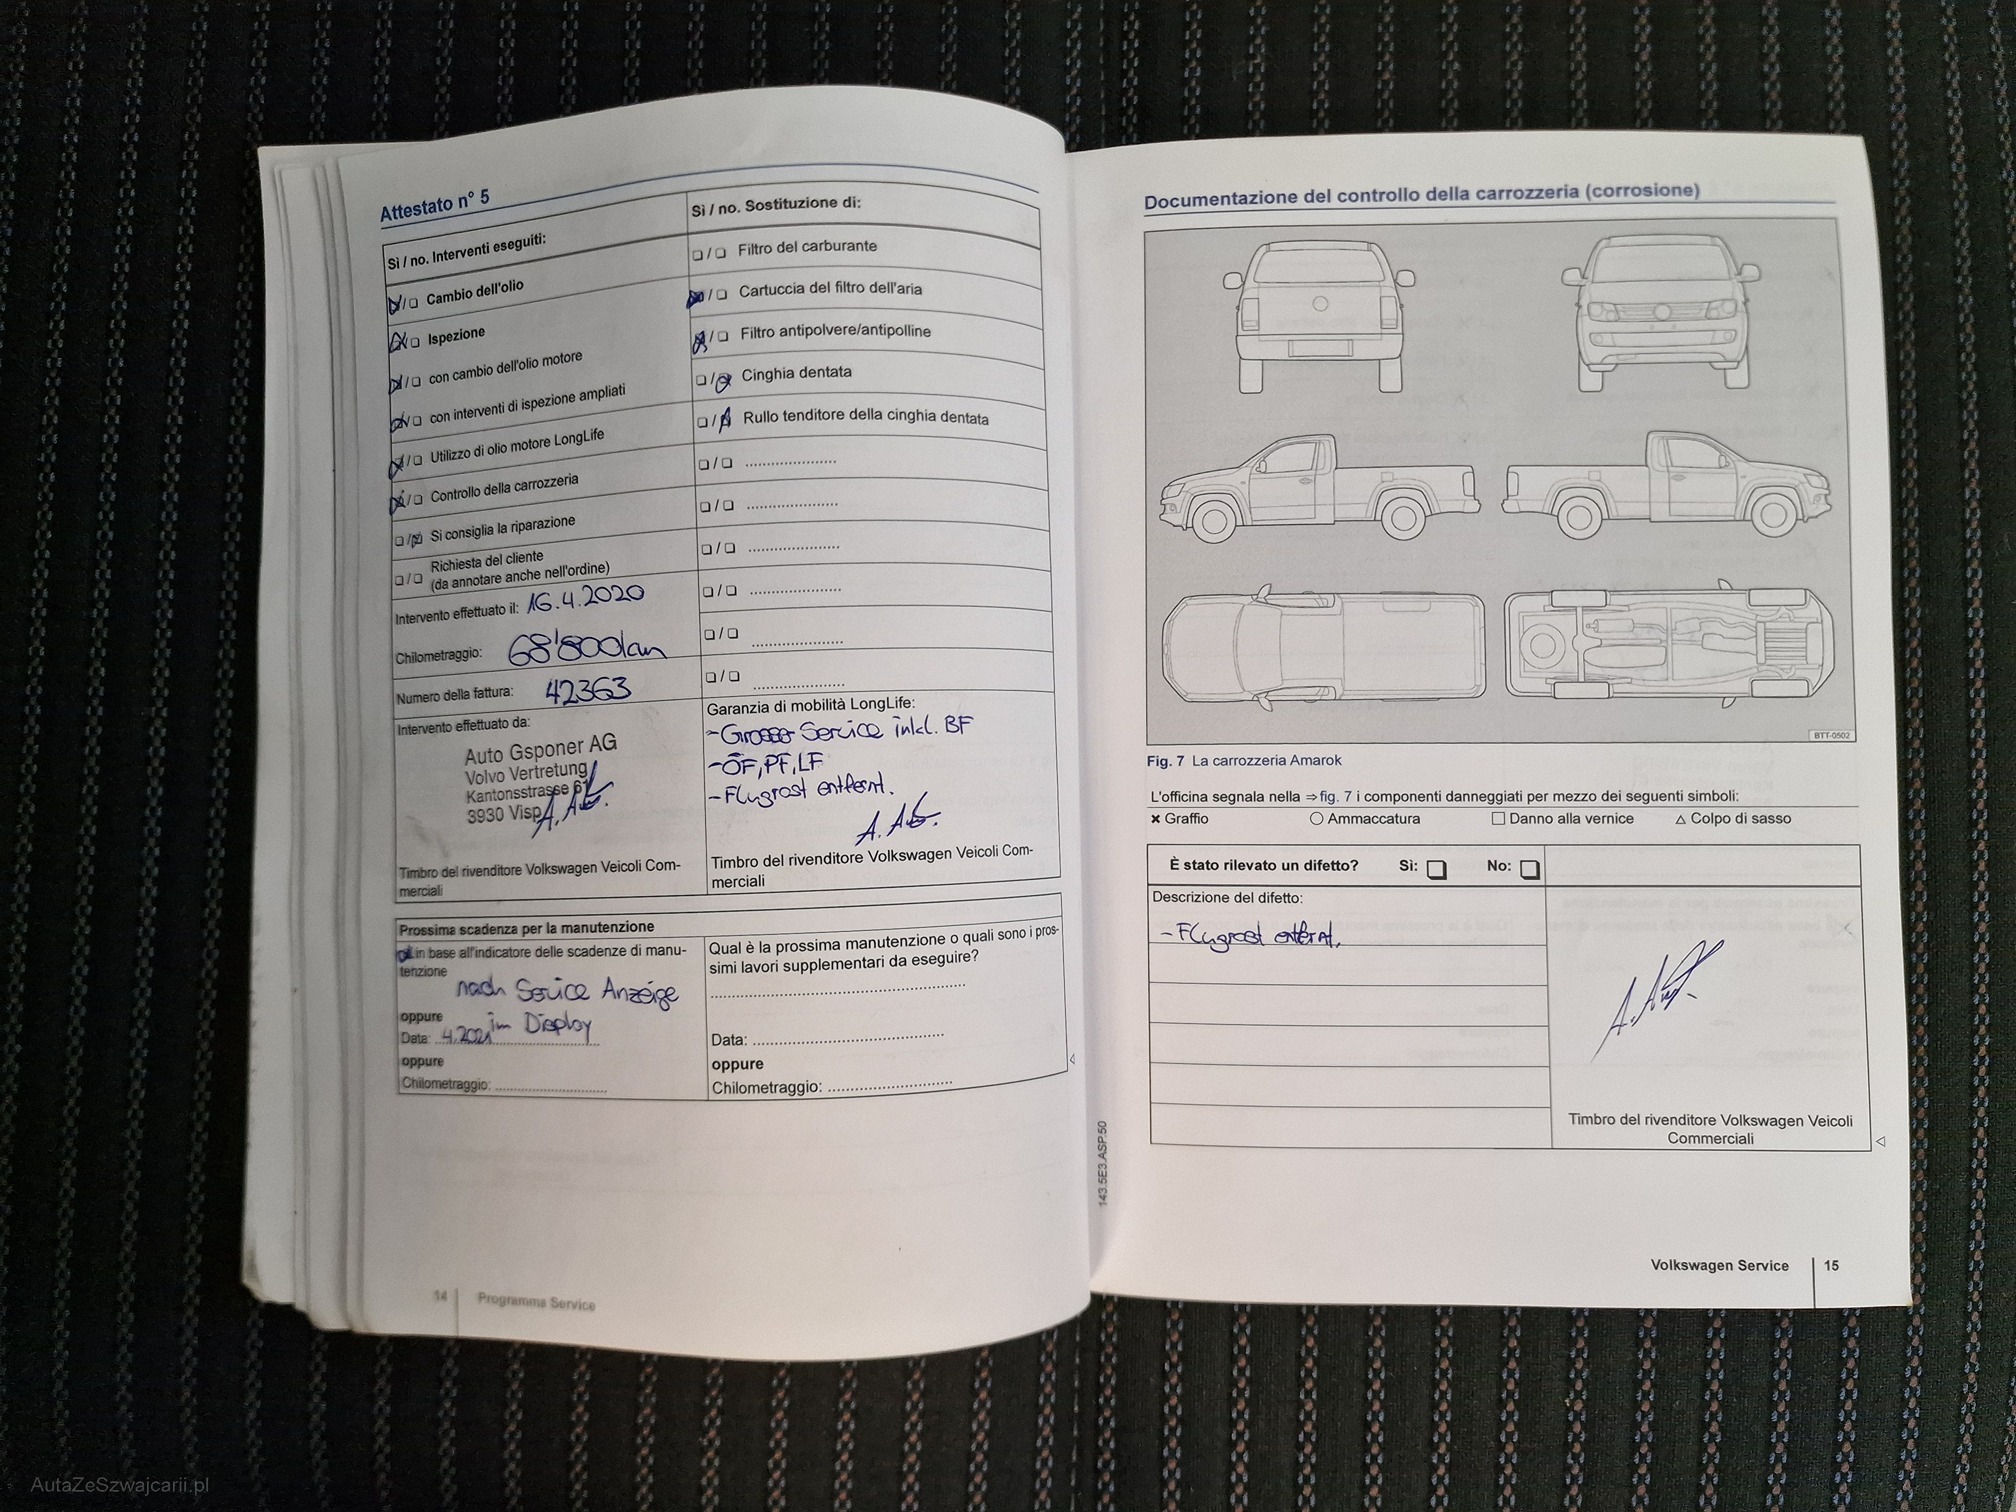 Attestato n° 5
Sì / no. Interventi eseguiti:
❏ / ❏ Cambio dell'olio
❏ / ❏ Ispezione
❏ / ❏ con cambio dell'olio motore
❏ / ❏ con interventi di ispezione ampliati
❏ / ❏ Utilizzo di olio motore LongLife
❏ / ❏ Controllo della carrozzeria
❏ / ❏ Si consiglia la riparazione
❏ / ❏ Richiesta del cliente
(da annotare anche nell'ordine)
Intervento effettuato il: 16.4.2020
Chilometraggio: 68'800km
Numero della fattura: 42363
Intervento effettuato da:
Auto Gsponer AG
Volvo Vertretung
Kantonsstrasse 61
3930 Visp
Timbro del rivenditore Volkswagen Veicoli Com-
merciali
Sì / no. Sostituzione di:
❏ / ❏ Filtro del carburante
❏ / ❏ Cartuccia del filtro dell'aria
❏ / ❏ Filtro antipolvere/antipolline
❏ / ❏ Cinghia dentata
❏ / ❏ Rullo tenditore della cinghia dentata
❏ / ❏ .....................
❏ / ❏ .....................
❏ / ❏ .....................
❏ / ❏ .....................
❏ / ❏ .....................
❏ / ❏ .....................
Garanzia di mobilità LongLife:
- Grosser Service inkl. BF
- ÖF, PF, LF
- Flugrost entfernt.
Timbro del rivenditore Volkswagen Veicoli Com-
merciali
Prossima scadenza per la manutenzione
in base all'indicatore delle scadenze di manu-
tenzione
nach Service Anzeige
im Display
oppure
Data: 4.2021
oppure
Chilometraggio: .....................
Qual è la prossima manutenzione o quali sono i pros-
simi lavori supplementari da eseguire?
Data: .....................
oppure
Chilometraggio: .....................
14 Programma Service
143.5E3.ASP.50
Documentazione del controllo della carrozzeria (corrosione)
BTT-0502
Fig. 7 La carrozzeria Amarok
L'officina segnala nella ⇒ fig. 7 i componenti danneggiati per mezzo dei seguenti simboli:
✖ Graffio ○ Ammaccatura □ Danno alla vernice △ Colpo di sasso
È stato rilevato un difetto? Sì: ❏ No: ❏
Descrizione del difetto:
- Flugrost entfernt.
Timbro del rivenditore Volkswagen Veicoli
Commerciali
Volkswagen Service 15
AutaZeSzwajcarii.pl